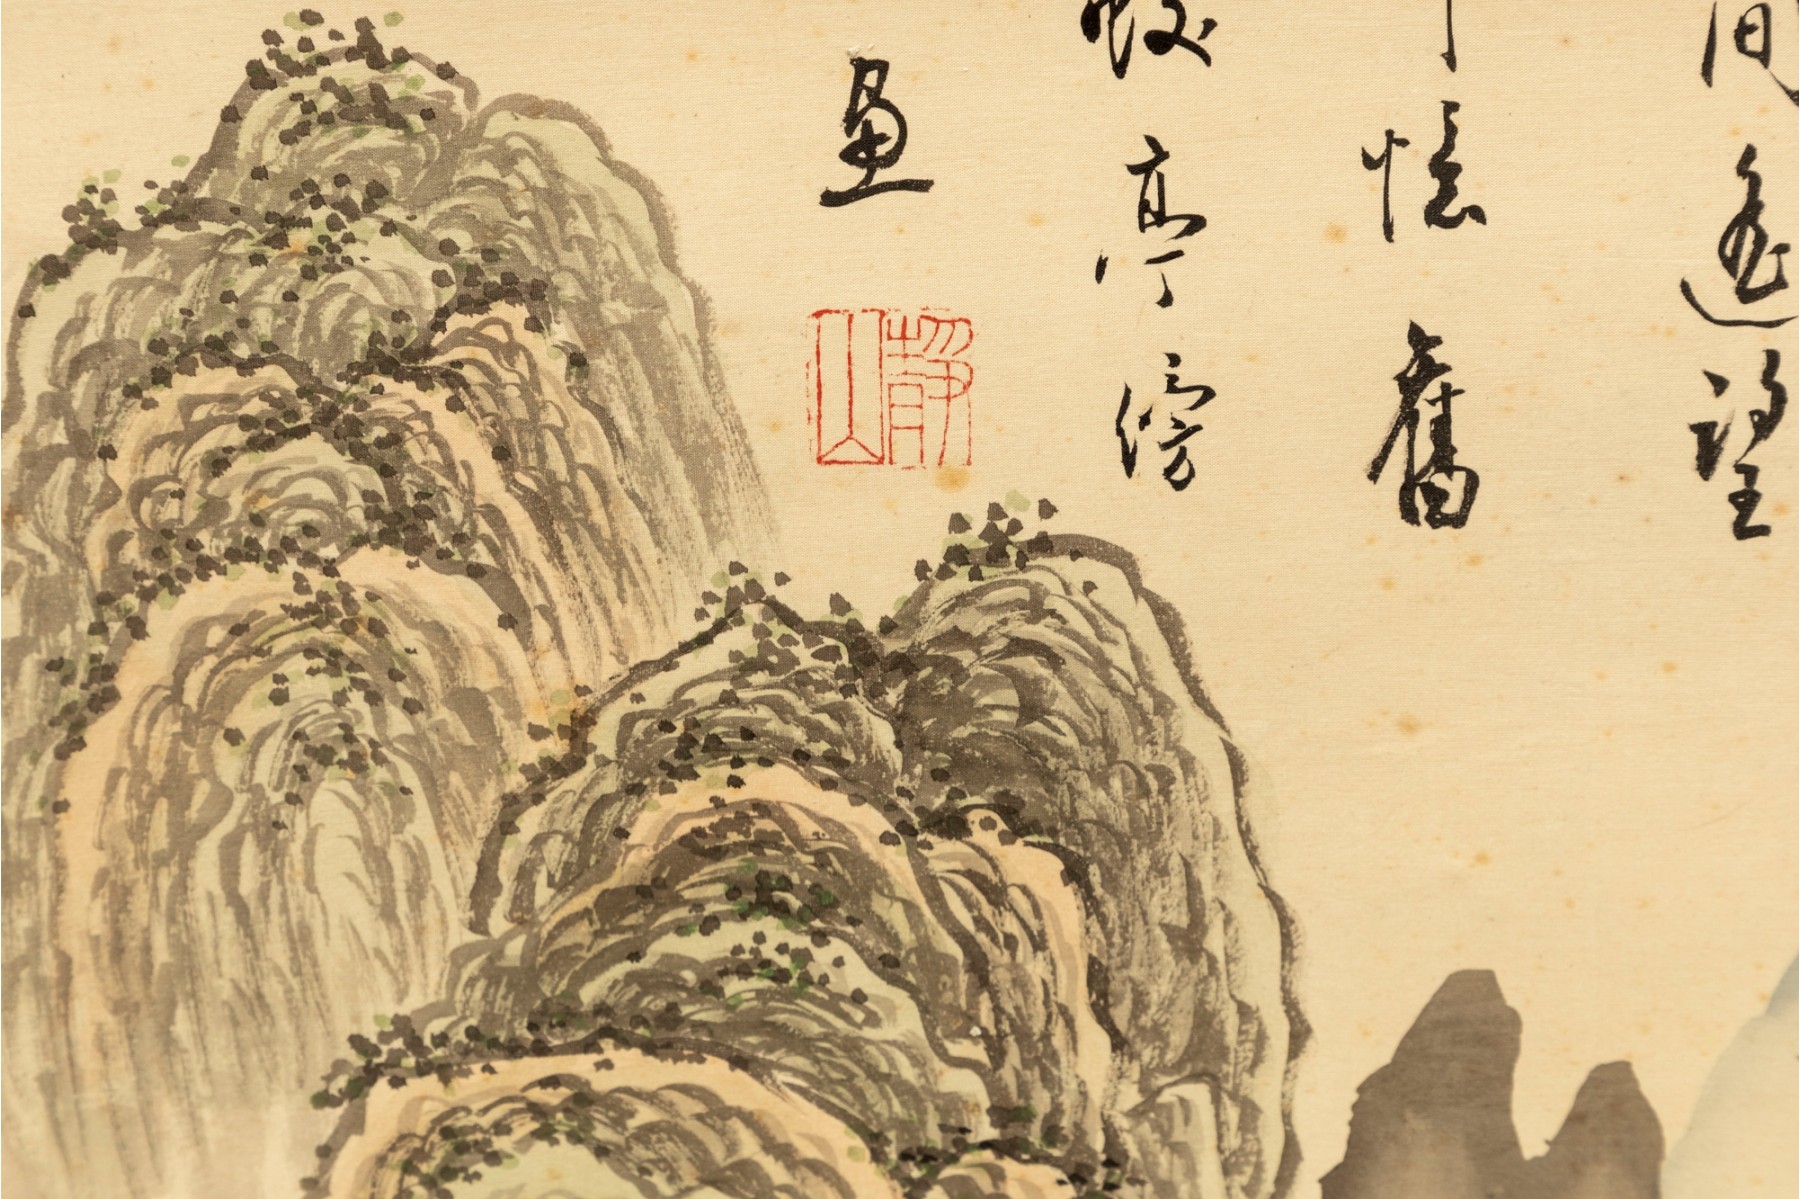 間遙望
憶舊
亭傍
畫
靜山